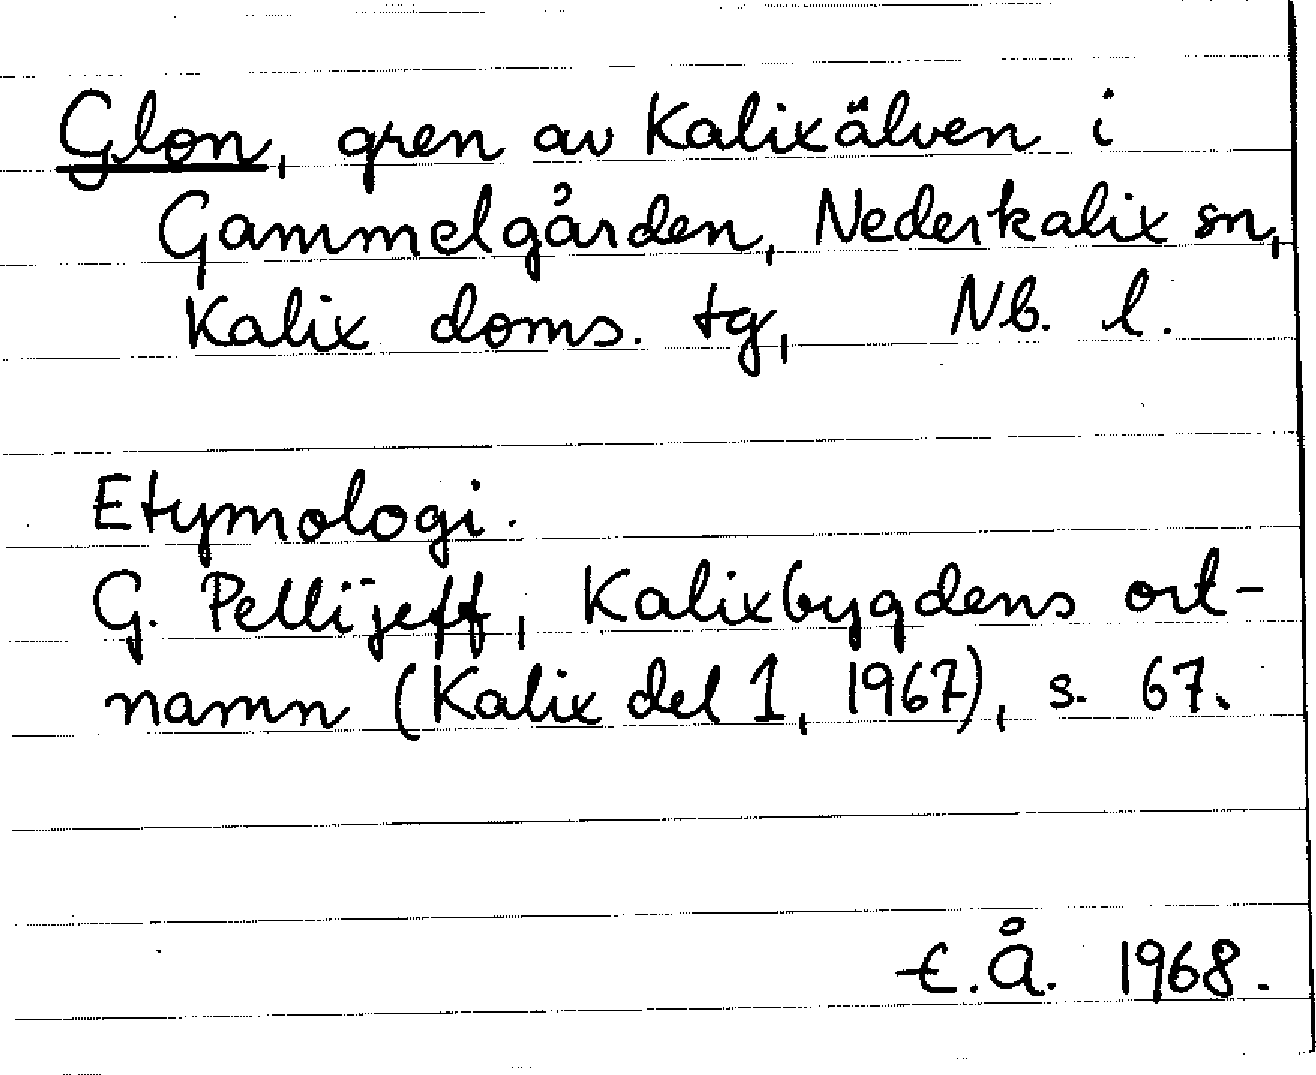 Glon, gren av Kalixälven i
Gammelgården, Nederkalix sn,
Kalix doms. tg, Nb. l.
Etymologi.
G. Pellijeff, Kalixbygdens ort-
namn (Kalix del 1, 1967), s. 67.
E.Å. 1968.